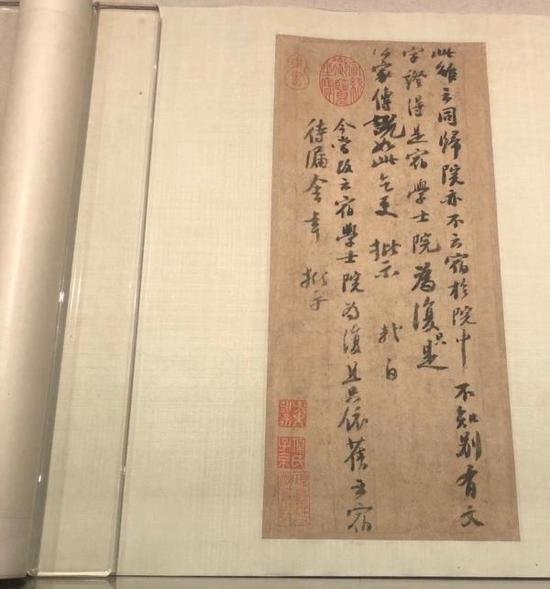 此雖云同歸院亦不云宿於院中不知別有文
字證得是宿學士院為復只是
公家傳說如此乞更批示 軾白
今當改云宿學士院為復且只依舊云宿
待漏舍幸批示